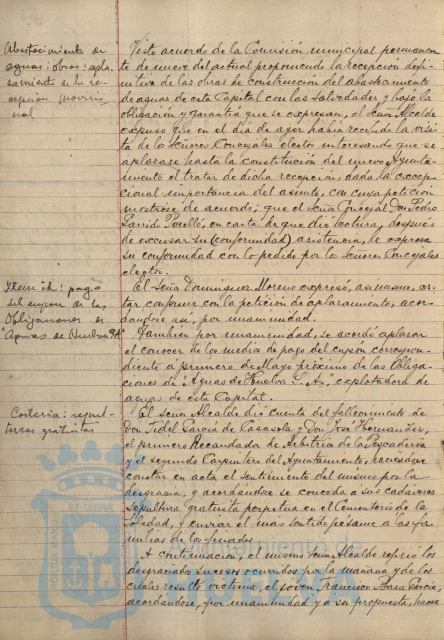 Abastecimiento de
aguas: obras: apla-
zamiento en la re-
cepción provisio-
nal
Visto acuerdo de la Comisión municipal permanen-
te de nueve del actual proponiendo la recepción defi-
nitiva de las obras de construcción del abastecimiento
de aguas de esta Capital con las salvedades y bajo la
obligación y garantía que se expresan, el Señor Alcalde
expuso que en el día de ayer había recibido la visi-
ta de los Señores Concejales electos interesando que se
aplazase hasta la constitución del nuevo Ayunta-
miento el tratar de dicha recepción, dada la excep-
cional importancia del asunto, con cuya petición
mostrose de acuerdo; que el Señor Concejal Don Pedro
Garrido Perelló, en carta de que dió lectura, después
de excusar su (conformidad) asistencia, le expresa
su conformidad con lo pedido por los Señores Concejales
electos.
Item id.: pago
del cupón de las
Obligaciones de
"Aguas de Huelva S.A."
El Señor Domínguez Moreno expresó, asimismo, es-
tar conforme con la petición de aplazamiento, acor-
dándose así, por unanimidad.
También por unanimidad, se acordó aplazar
el conocer de los medios de pago del cupón correspon-
diente a primero de Mayo próximo de las Obliga-
ciones de "Aguas de Huelva S. A.", explotadora de
aguas de esta Capital.
Cortesía: sepul-
turas gratuitas
El Señor Alcalde dió cuenta del fallecimiento de
Don Fidel García de Casasola y Don José Hernández,
el primero Recaudador de Arbitrios de la Pescadería
y el segundo Carpintero del Ayuntamiento, haciéndose
constar en acta el sentimiento del mismo por la
desgracia, y acordándose se conceda a sus cadáveres
sepultura gratuita perpetua en el Cementerio de la
Soledad, y enviar el más sentido pésame a las fa-
milias de los finados.
A continuación, el mismo Señor Alcalde refirió los
desgraciados sucesos ocurridos por la mañana y de los
cuales resultó víctima, el joven Francisco García,
acordándose, por unanimidad y a su propuesta, hacer